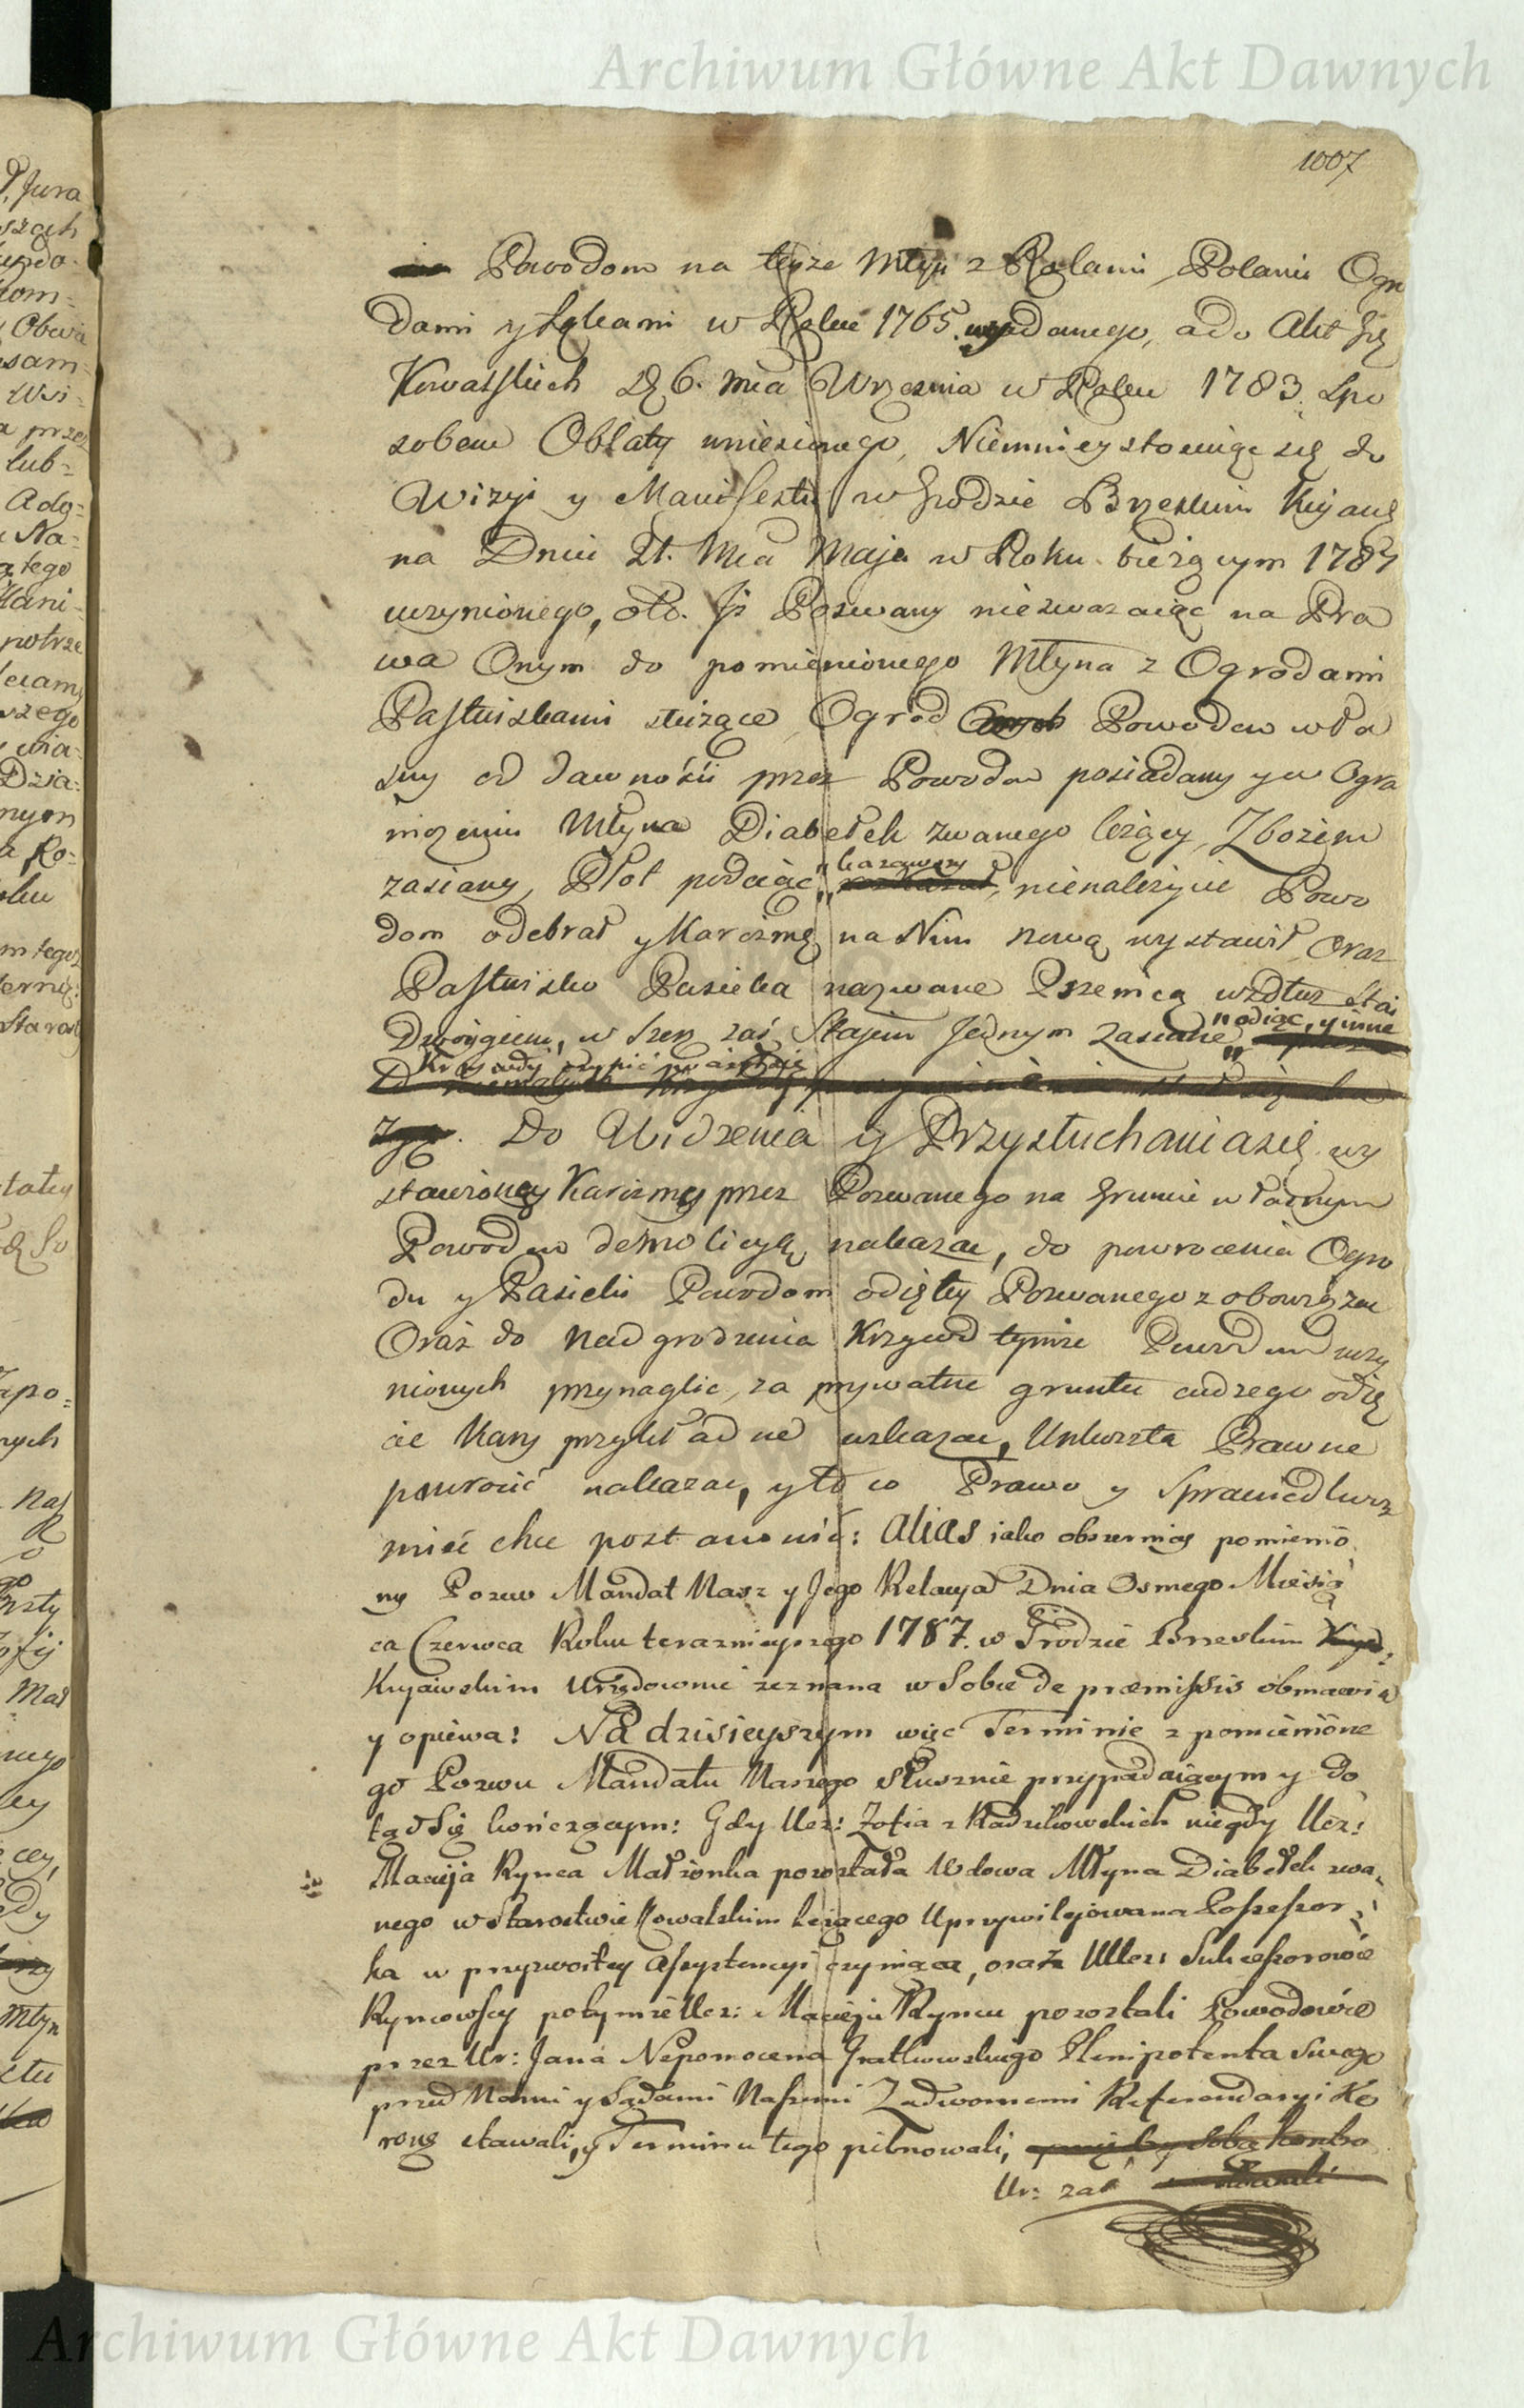 Archiwum Główne Akt Dawnych
1007
Powodom na teyże Młyn z Rolami, Polami Ogro
dami y Łąkami w Roku 1765. wydanego, a do Akt Gr
Kowalskich D. 6. Mca Wrzesnia w Roku 1783. Spo
sobem Oblaty wniesionego, Niemniey stosuiąc się do
Wizyi y Manifestu w Grodzie Brzeskim Kujaws
na Dniu 21. Mca Maja w Roku bieżącym 1787
uczynionego, oto. Iż Pozwany niezwazaiąc na Pra
wa Onym do pomienionego Młyna z Ogrodami
Pastwiskami służące, Ogrod Powodow wła
sny od dawności przez Powodow posiadany y w Ogra
niczeniu Młyna Diabełek zwanego leżący, Zbożem
zasiany, Płot podciąć kazawszy, nienależycie Powo
dom odebrał y Karczmę na Nim nową wystawił, oraz
Pastwisko Pasieka nazwane Pszenicą wzdłuż Stai
Dwoygiem, w Szerz zaś Staiem Jednym zasiane, odiąć, y inne
Krzywdy czynić
Do Widzenia y Przysłuchania się wy
stawioney Karczmy przez Pozwanego na Gruncie własnym
Powodow demolicyą nakazac, do powrocenia Ogro
du y Pasieki Powodom odięty Pozwanego z obowiązac
Oraz do nadgrodzenia Krzywd tymże Powodom uczy
nionych przynaglic, za prywatne gruntu cudzego odię
cie Kary przykładne wskazac, Unkoszta Prawne
powrocić nakazac, y to co Prawo y Sprawiedliwosz
mieć chce postanowić: alias iako obszerniey pomienio
ny Pozew Mandat Nasz y Jego Relacya Dnia Osmego Miesią
ca Czerwca Roku terazniejszego 1787. w Grodzie Brzeskim
Kujawskim Urzędownie zeznana w Sobie de præmissis obmawia
y opiewa: Na dzisieyszym więc Terminie z pomienione
go Pozwu Mandatu Naszego słusznie przypadaiącym y do
tąd się kończącym: Gdy Ucz: Zofia z Kadzikowskich niegdy Ucz:
Macieja Rynca Małżonka pozostała Wdowa Młyna Diabełek zwa
nego w Starostwie Kowalskim leżącego Uprzywilejowana Possessor
ka w przyzwoitey Assystencyi czyniąca, oraz UUcz: Sukcessorowie
Ryncowscy po tymże Ucz: Macieju Ryncu pozostali Powodowie
przez Ur: Jana Nepomocena Gratkowskiego Plenipotenta Swego
przed Nami y Sądami Naszemi Zadwornemi Referendaryi Ko
rony stawali, y Terminu tego pilnowali,
Ur: zaś
Archiwum Główne Akt Dawnych